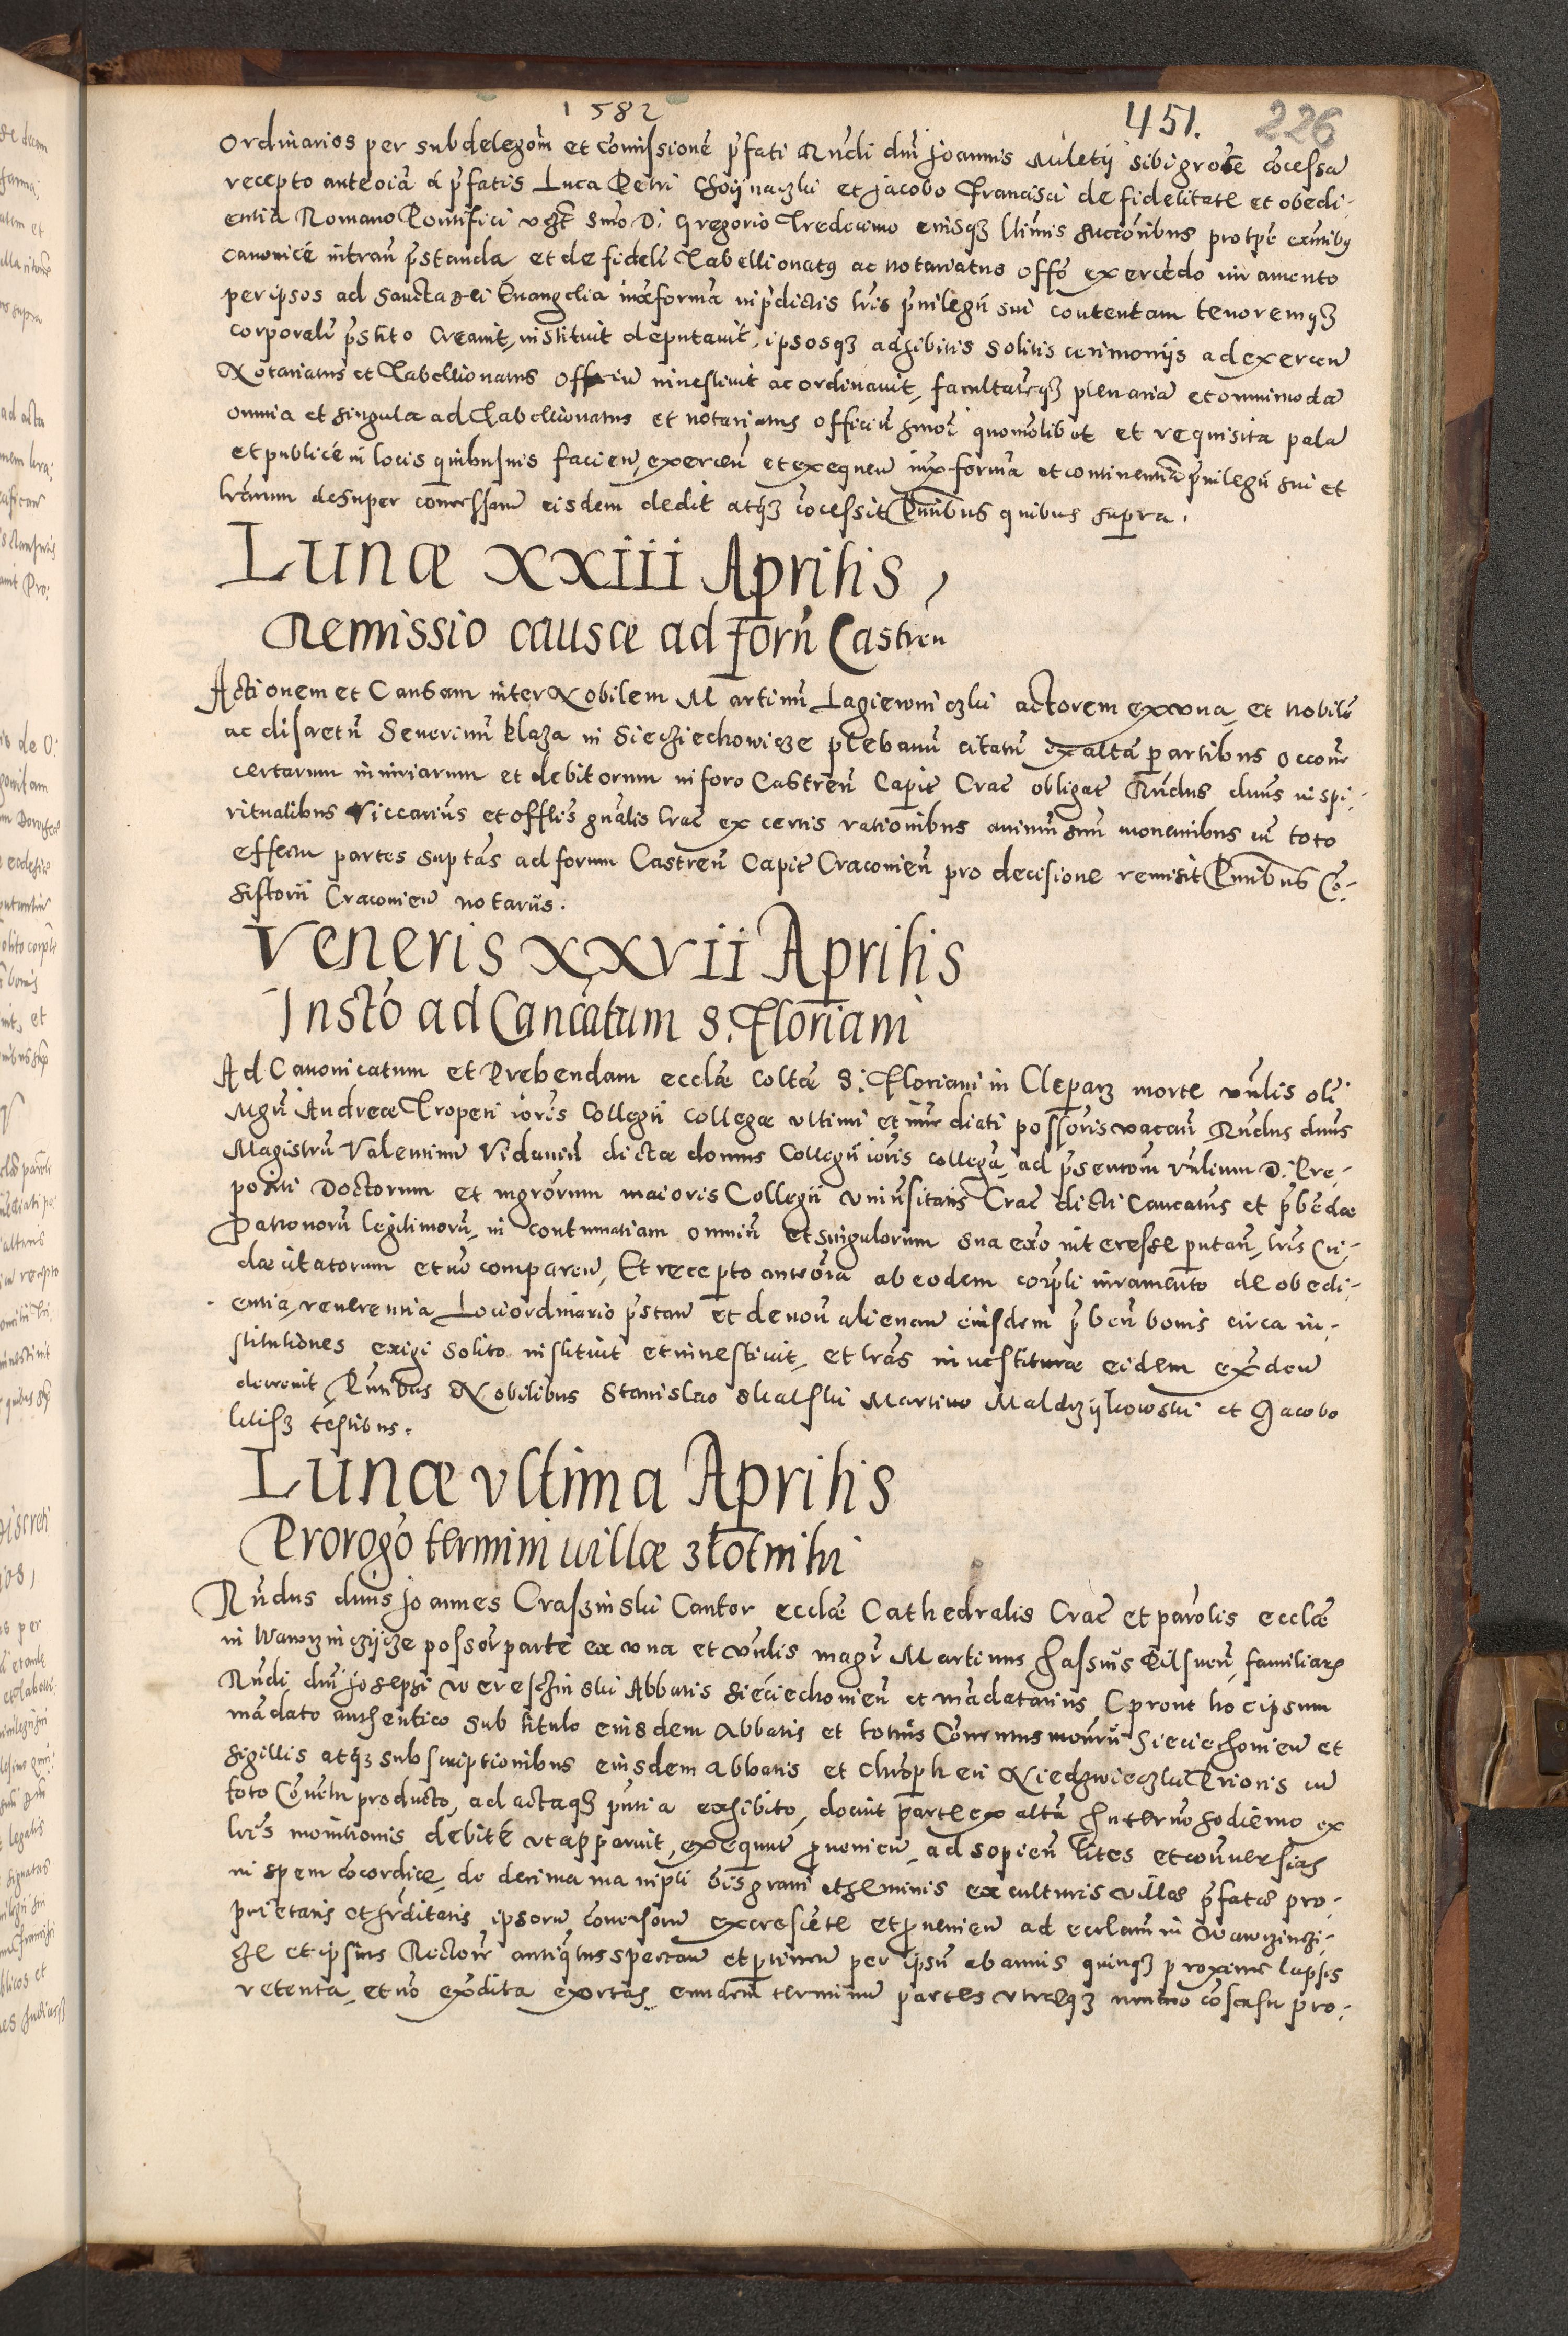 1582
451. 226
ordinarios per subdelegom̄ et cōmissionē p̄fati Rn̄di dn̄i Joannis Muletij sibi grōse cōcessa
recepto anteoīa á p̄fatis Luca Petri Choijnaczki et Jacobo Francisci de fidelitate et obedi-
entia Romano Pontifici Smō D. Gregorio Tredecimo eiusqȝ ltīmis successōribus pro tpē exn̄tibȝ
canonicé intran̄ p̄standa et de fideli Tabellionatus ac notariatus offō exercēdo iuramento
per ipsos ad Sancta Dei Euangelia iux̄ formā in p̄dictis lrīs p̄uilegij sui contentam tenoremqȝ
corporali p̄stito Creauit, instituit deputauit, ipsosqȝ adhibitis solitis cerimonijs ad exercen̄
Notariatus et Tabellionatus officiū inuestiuit ac ordinauit, facultatēqȝ plenariā et omnimodā
omnia et singula ad Tabellionatus et notariatus officiū hmōi quomōlibet et requisita palā
et publicé in locis quibusuis facien̄, exercen̄ et exequen̄ iux̄ formā et continentiā p̄uilegij sui et
lrārum desuper concessarū eisdem dedit atqȝ cōcessit Pn̄tibus quibus supra.
Lunæ XXIII Aprilis,
Remissio causæ ad forū Castren̄
Actionem et Causam inter Nobilem Martinū Lagiewniczki actorem ex vna, et nobilē
ac discretū Seuerinū Klaza in Siechiechowicze plebanū citatū ex altā partibus occōne
certarum iniuriarum et debitorum in foro Castren̄ Capit̄ Crac̄ obligat̄ Rn̄dus dn̄us in spi-
ritualibus Viccarius et offlīs gn̄alis Crac̄ ex certis rationibus animū suū mouentibus cū toto
effectu partes supt̄as ad forum Castren̄ Capit̄ Cracouien̄ pro decisione remisit Pn̄tibus Co-
sistorij Cracouien̄ notariis.
Veneris XXVII Aprilis
Instō ad Canc̄atum S. Floriani
Ad Canonicatum et Prebendam ecclǣ coltǣ S. Floriani in Cleparz morte vn̄lis oli
Mgrī Andreæ Troperi ioris Collegij collegæ vltimi et imme diati possōris vacan̄ Rn̄dus dn̄us
Magistrū Valentinū Vidauiū dictæ domus Collegij ioris collegā, ad p̄sentom̄ Vn̄lium D. Pre-
positi Doctorum et mgrōrum maioris Collegij vniuersitatis Crac̄ dicti Canc̄atus et p̄bēdæ
Patronorū legitimorū, in contumatiam omniū et singulorum sua exō interesse putan̄, lrīs Cri-
dæ citatorum et nō comparen̄, Et recepto anteōia ab eodem corpli iuramento de obedi-
entia, reuerentia Loci ordinario p̄stan̄ et de non alienan̄ eiusdem p̄ben̄ bonis circa in-
stitutiones exigi solito instituit et inuestiuit, et lrās inuestituræ eidem exdēn
decreuit Pn̄tibus Nobilibus Stanislao Skalski Martino Maldrzijkowski et Jacobo
testibus.
Lunæ vltima Aprilis
Prorogō termini villæ zlotniki
Rn̄dus dn̄us Joannes Craszinski Cantor ecclǣ Cathedralis Crac̄ et parōlis ecclǣ
in Wawrzinczijcze possor̄ parte ex vna et vn̄lis magr̄ Martinus Hassius Pilsnen̄, familiaris
Rn̄di dn̄i Josephi Wereschinski Abbatis Sieciechouien̄ et mādatarius, prout hoc ipsum
mādato authentico sub titulo eiusdem Abbatis et totius Conuentus mon̄rij Sieciechouien̄ et
sigillis atqȝ subscriptionibus eiusdem Abbatis et Christopheri Niedzwieczki Prioris cū
toto Cōuētu producto, ad actaqȝ pn̄tia exhibito, docuit parte ex altā In termō hodierno ex
lrīs monitionis debité vt apparuit, exequut̄ prouenien̄, ad sopien̄ lites et contr̄uersias
in spem cōcordiæ, de decima manipli bis grani et seminis ex culturis villæ p̄fatæ pro-
prietatis et hr̄ditatis ipsorū conuersorū excrescēte et prouenien̄ ad ecclam̄ in Wawrzinczi-
ze et ipsius Rectorē antiquitus spectan̄ et ptinen̄ per ipsū ab annis quinqȝ proxime lapsis
retenta, et nō exdita exortas, eundem terminū partes vtræqȝ cōsensu pro-